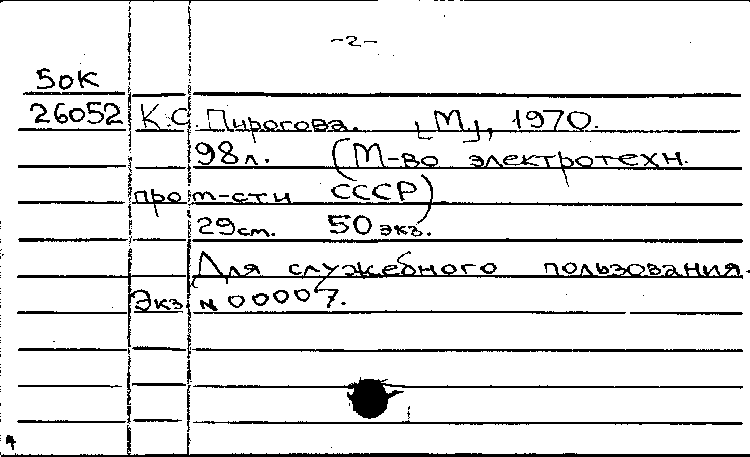 -2-
5оК
26052 К.С. Пирогова. [М.], 1970.
98л. (М-во электротехн.
пром-сти СССР)
29см. 50 экз.
Для служебного пользования.
Экз. № 00007.